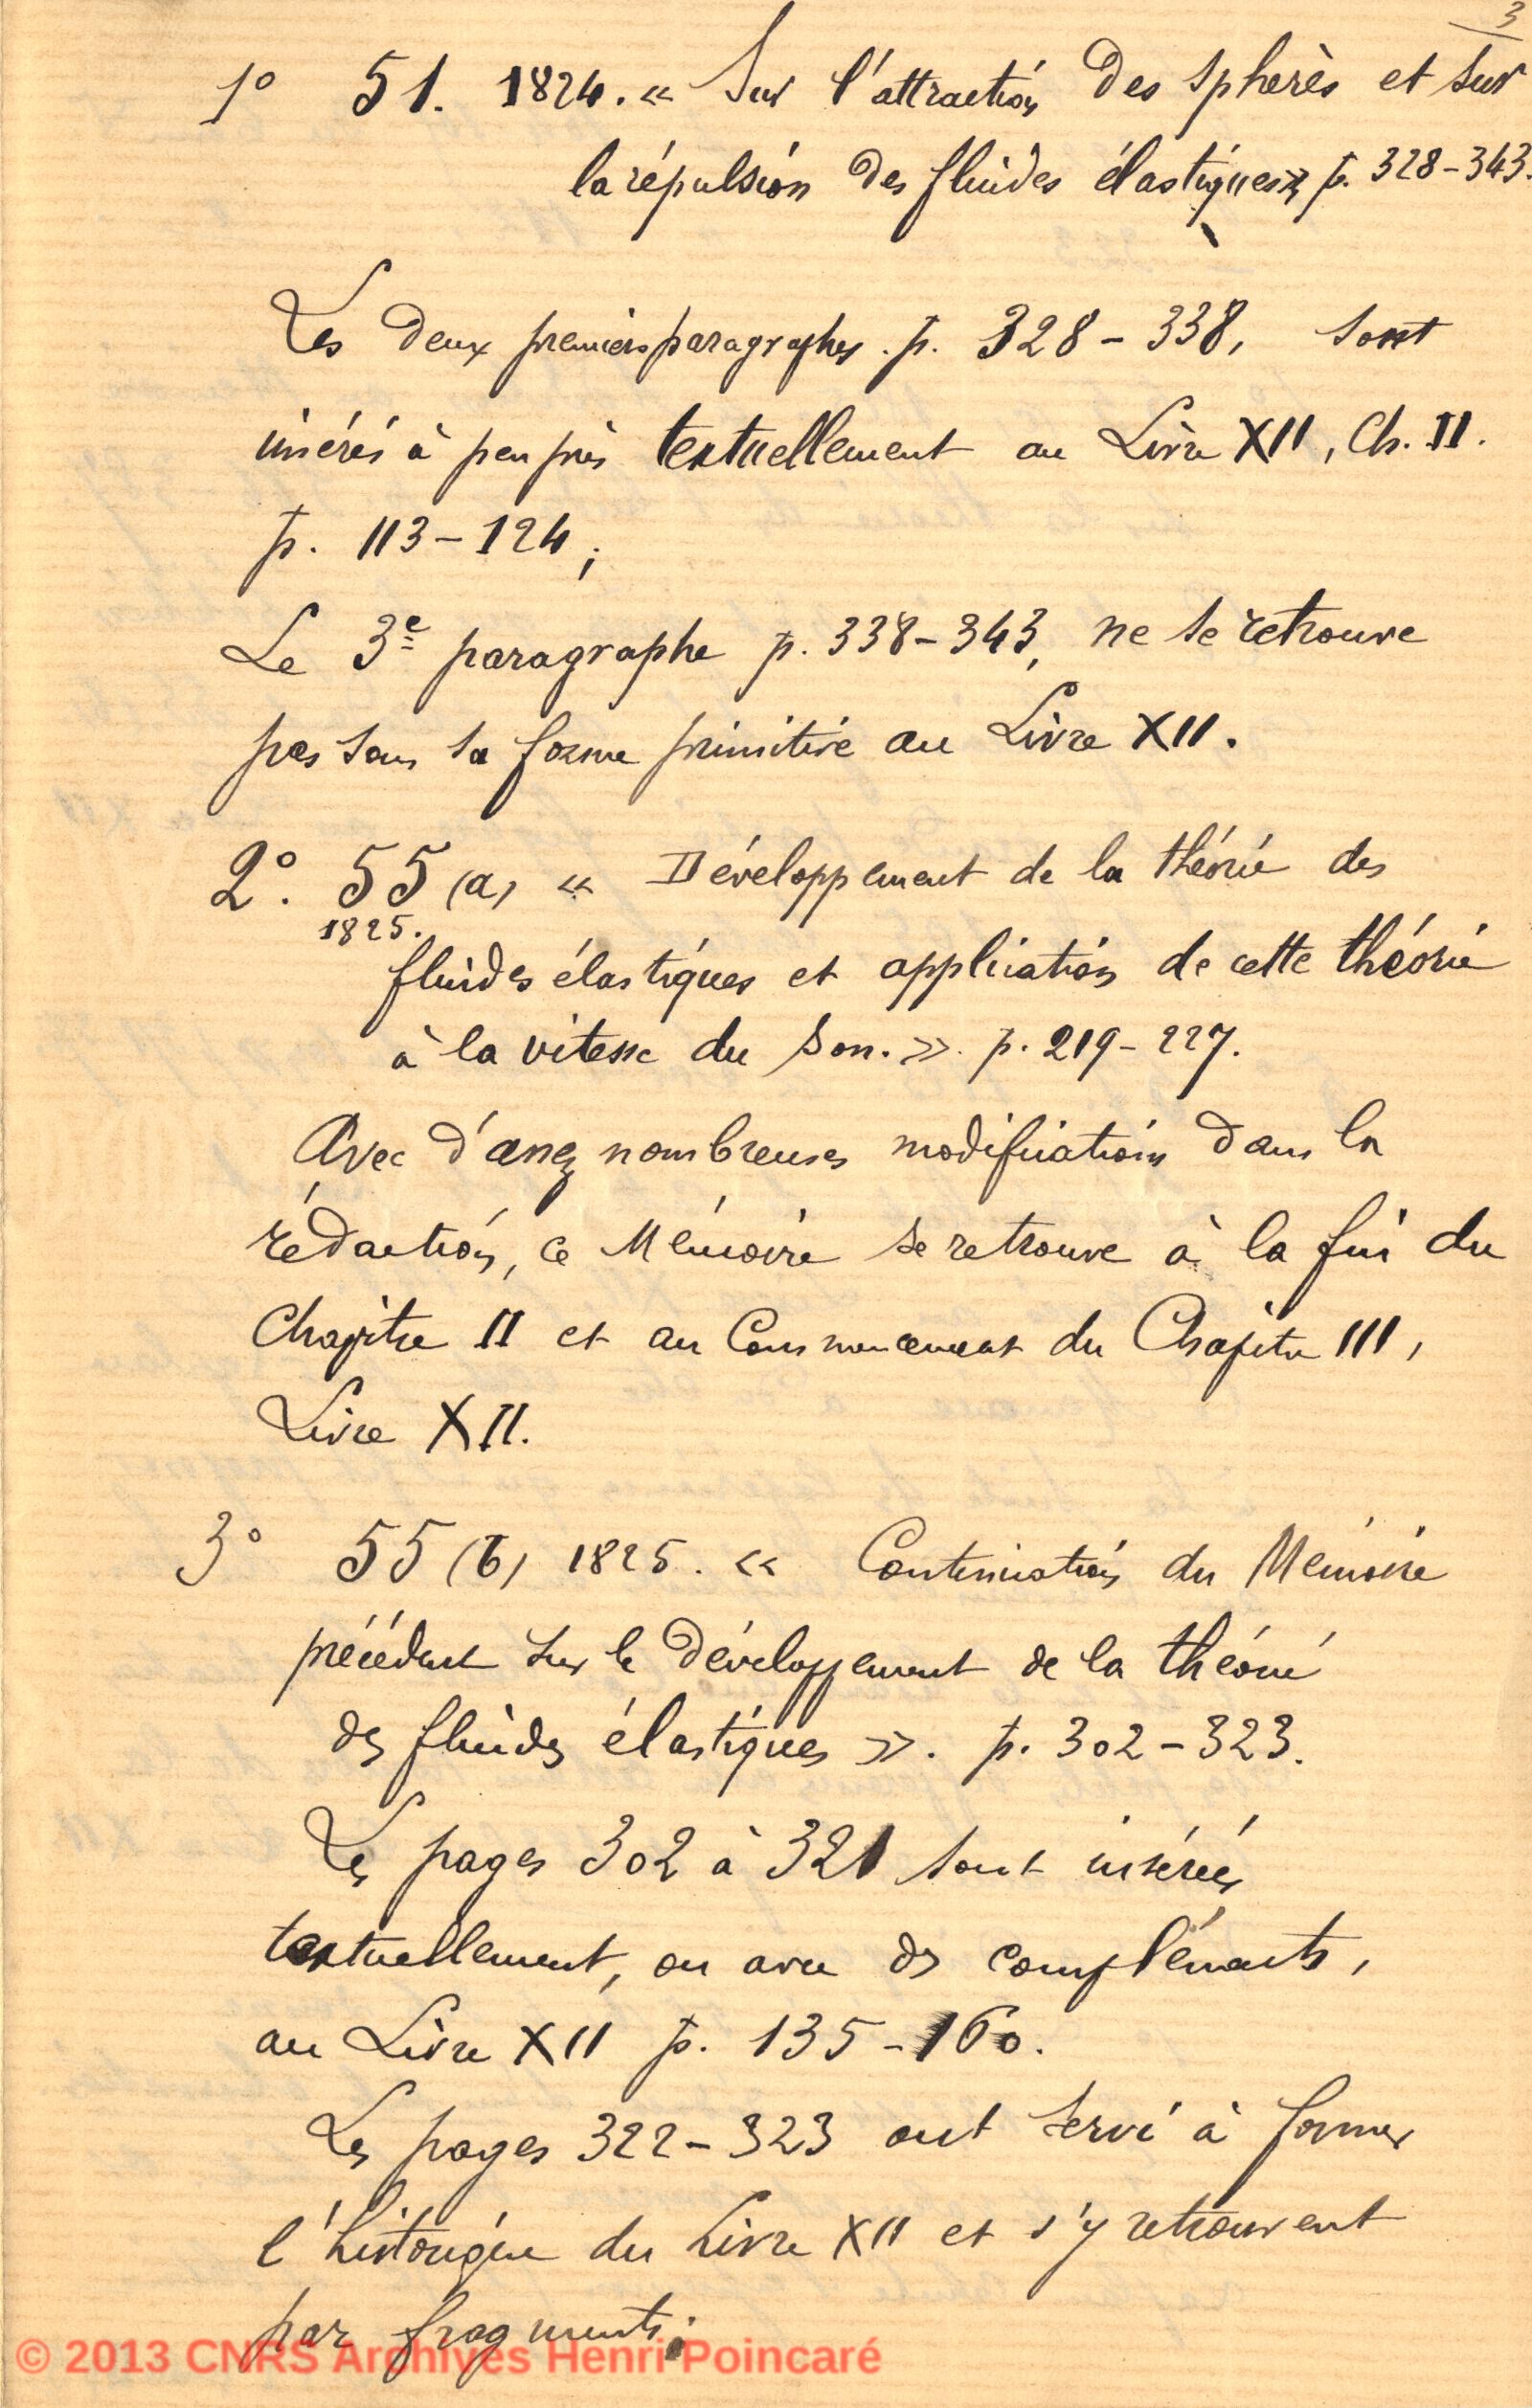 3
1º 51. 1824. « Sur l'attraction des sphères et sur
la répulsion des fluides élastiques », p. 328-343.
Les deux premiers paragraphes. p. 328-338, sont
insérés à peu près textuellement au Livre XII, Ch. II.
p. 113-124;
Le 3e paragraphe p. 338-343, ne se retrouve
pas sous sa forme primitive au Livre XII.
2º. 55 (a) « Développement de la théorie des
1825.
fluides élastiques et application de cette théorie
à la vitesse du son. ». p. 219-227.
Avec d'assez nombreuses modifications dans la
rédaction, ce Mémoire se retrouve à la fin du
Chapitre II et au Commencement du Chapitre III,
Livre XII.
3º 55 (b) 1825. « Continuation du Mémoire
précédent sur le développement de la théorie
des fluides élastiques ». p. 302-323.
Les pages 302 à 321 sont insérées
textuellement, ou avec des compléments,
au Livre XII p. 135-160.
Les pages 322-323 ont servi à former
l'historique du Livre XII et s'y retrouvent
par fragments;
© 2013 CNRS Archives Henri Poincaré